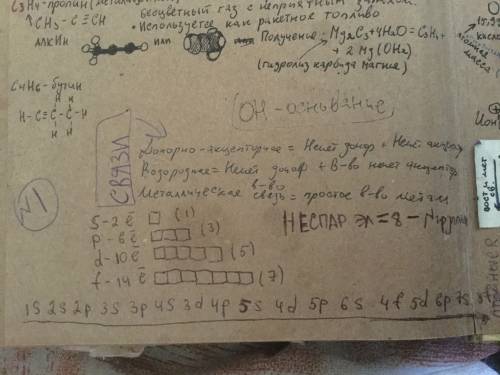 C3H4-пропин (метилацетилен)
Бесцветный газ с неприятным запахом.
CH3 - C ≡ CH
• Используется как ракетное топливо
алкин
или
Получение: Mg2C3+4H2O = C3H4+
+ 2 Mg(OH2)
(гидролиз карбида магния)
C4H6-бутин
H H
H-C≡C-C-C-H
H H
OH - основание
СВЯЗИ
Донорно-акцепторное = Немет донор + Немет акцептор
Водородное = Немет донор + В-во немет акцептор
в-во
Металлическая связь = простое в-во металл
N1
S-2ē (1)
P-6ē (3)
d-10ē (5)
f-14ē (7)
НЕСПАР ЭЛ = 8 - Nгруппы
1S 2S 2p 3S 3p 4S 3d 4p 5S 4d 5p 6s 4f 5d 6p 7s
Ион
масса